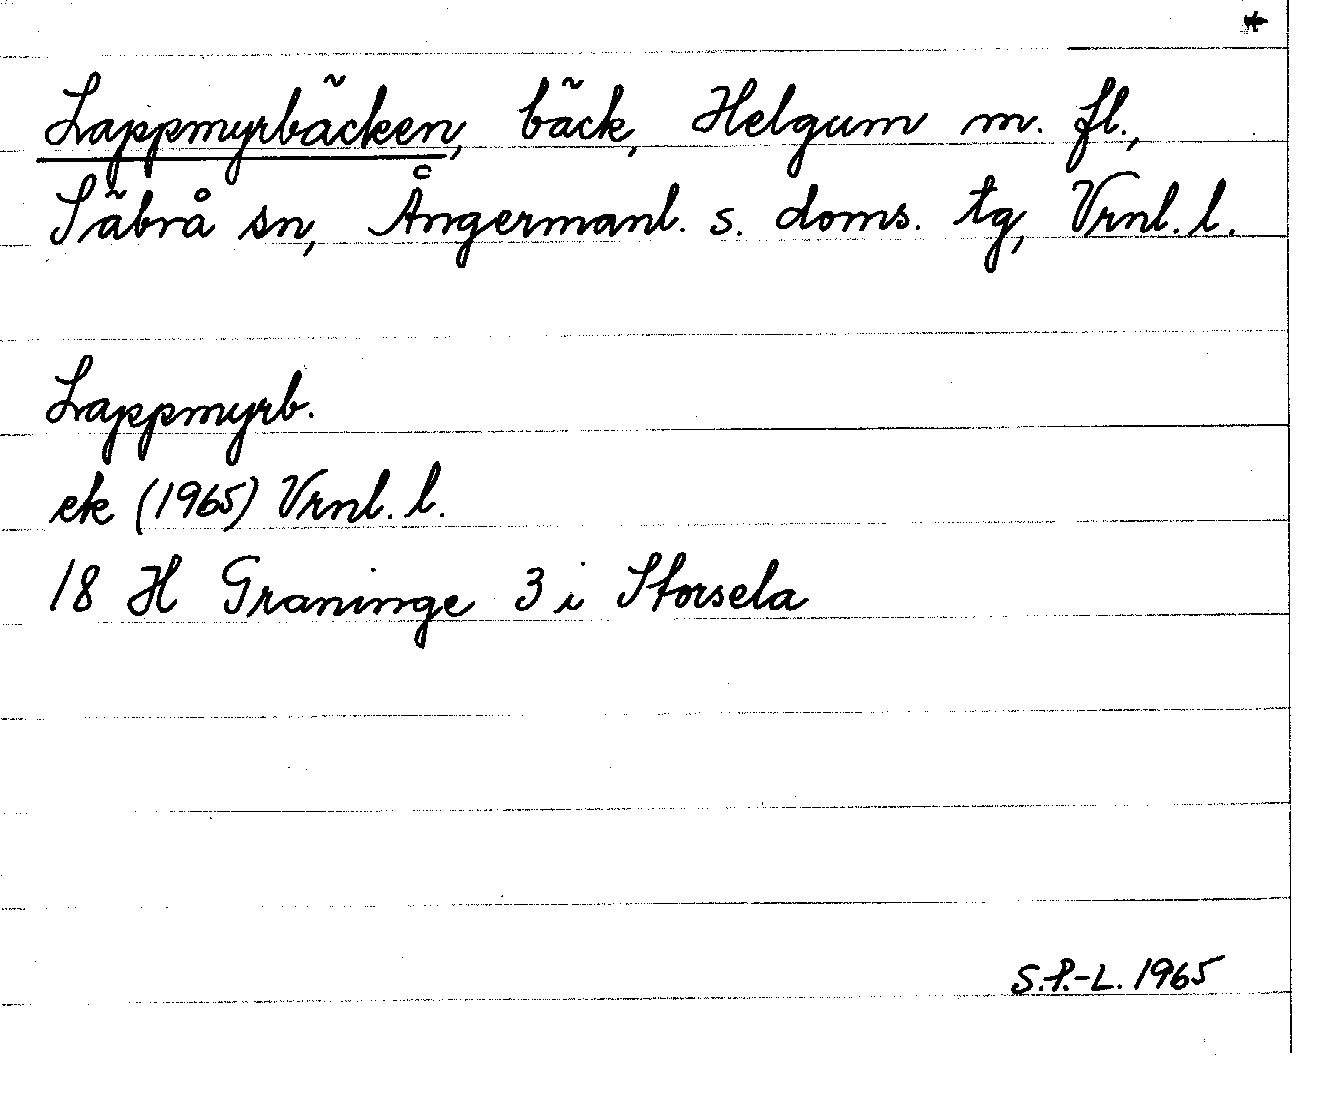 Lappmyrbäcken, bäck, Helgum m. fl.,
Säbrå sn, Ångermanl. s. doms. tg, Vrnl. l.
Lappmyrb.
ek (1965) Vrnl. l.
18 H Graninge 3 i Storsela
S.P.-L. 1965